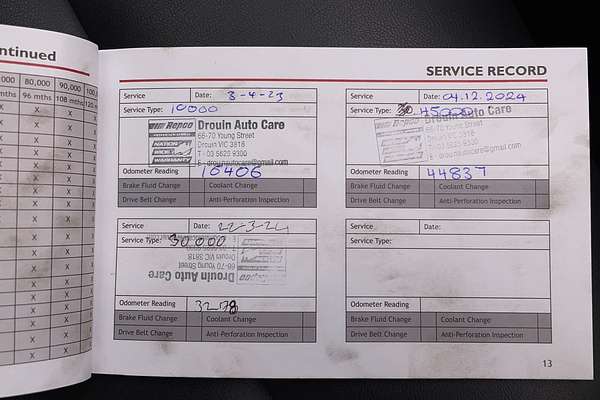 ntinued
000 80,000 90,000 100,0
mths 96 mths 108 mths 120 m
SERVICE RECORD
Service Date: 3-4-23
Service Type: 10000
Repco Drouin Auto Care
66-70 Young Street
Drouin VIC 3818
T - 03 5625 9300
E - drouinautocare@gmail.com
NATION WIDE WARRANTY
Odometer Reading 10406
Brake Fluid Change Coolant Change
Drive Belt Change Anti-Perforation Inspection
Service Date: 04.12.2024
Service Type: 45000
Drouin Auto Care
66-70 Young Street
Drouin VIC 3818
T - 03 5625 9300
E - drouinautocare@gmail.com
Odometer Reading 44837
Brake Fluid Change Coolant Change
Drive Belt Change Anti-Perforation Inspection
Service Date: 22-3-24
Service Type: 30,000
Drouin VIC 3818
66-70 Young Street
Drouin Auto Care
Repco
Odometer Reading
Brake Fluid Change Coolant Change
Drive Belt Change Anti-Perforation Inspection
Service Date:
Service Type:
Odometer Reading
Brake Fluid Change Coolant Change
Drive Belt Change Anti-Perforation Inspection
13